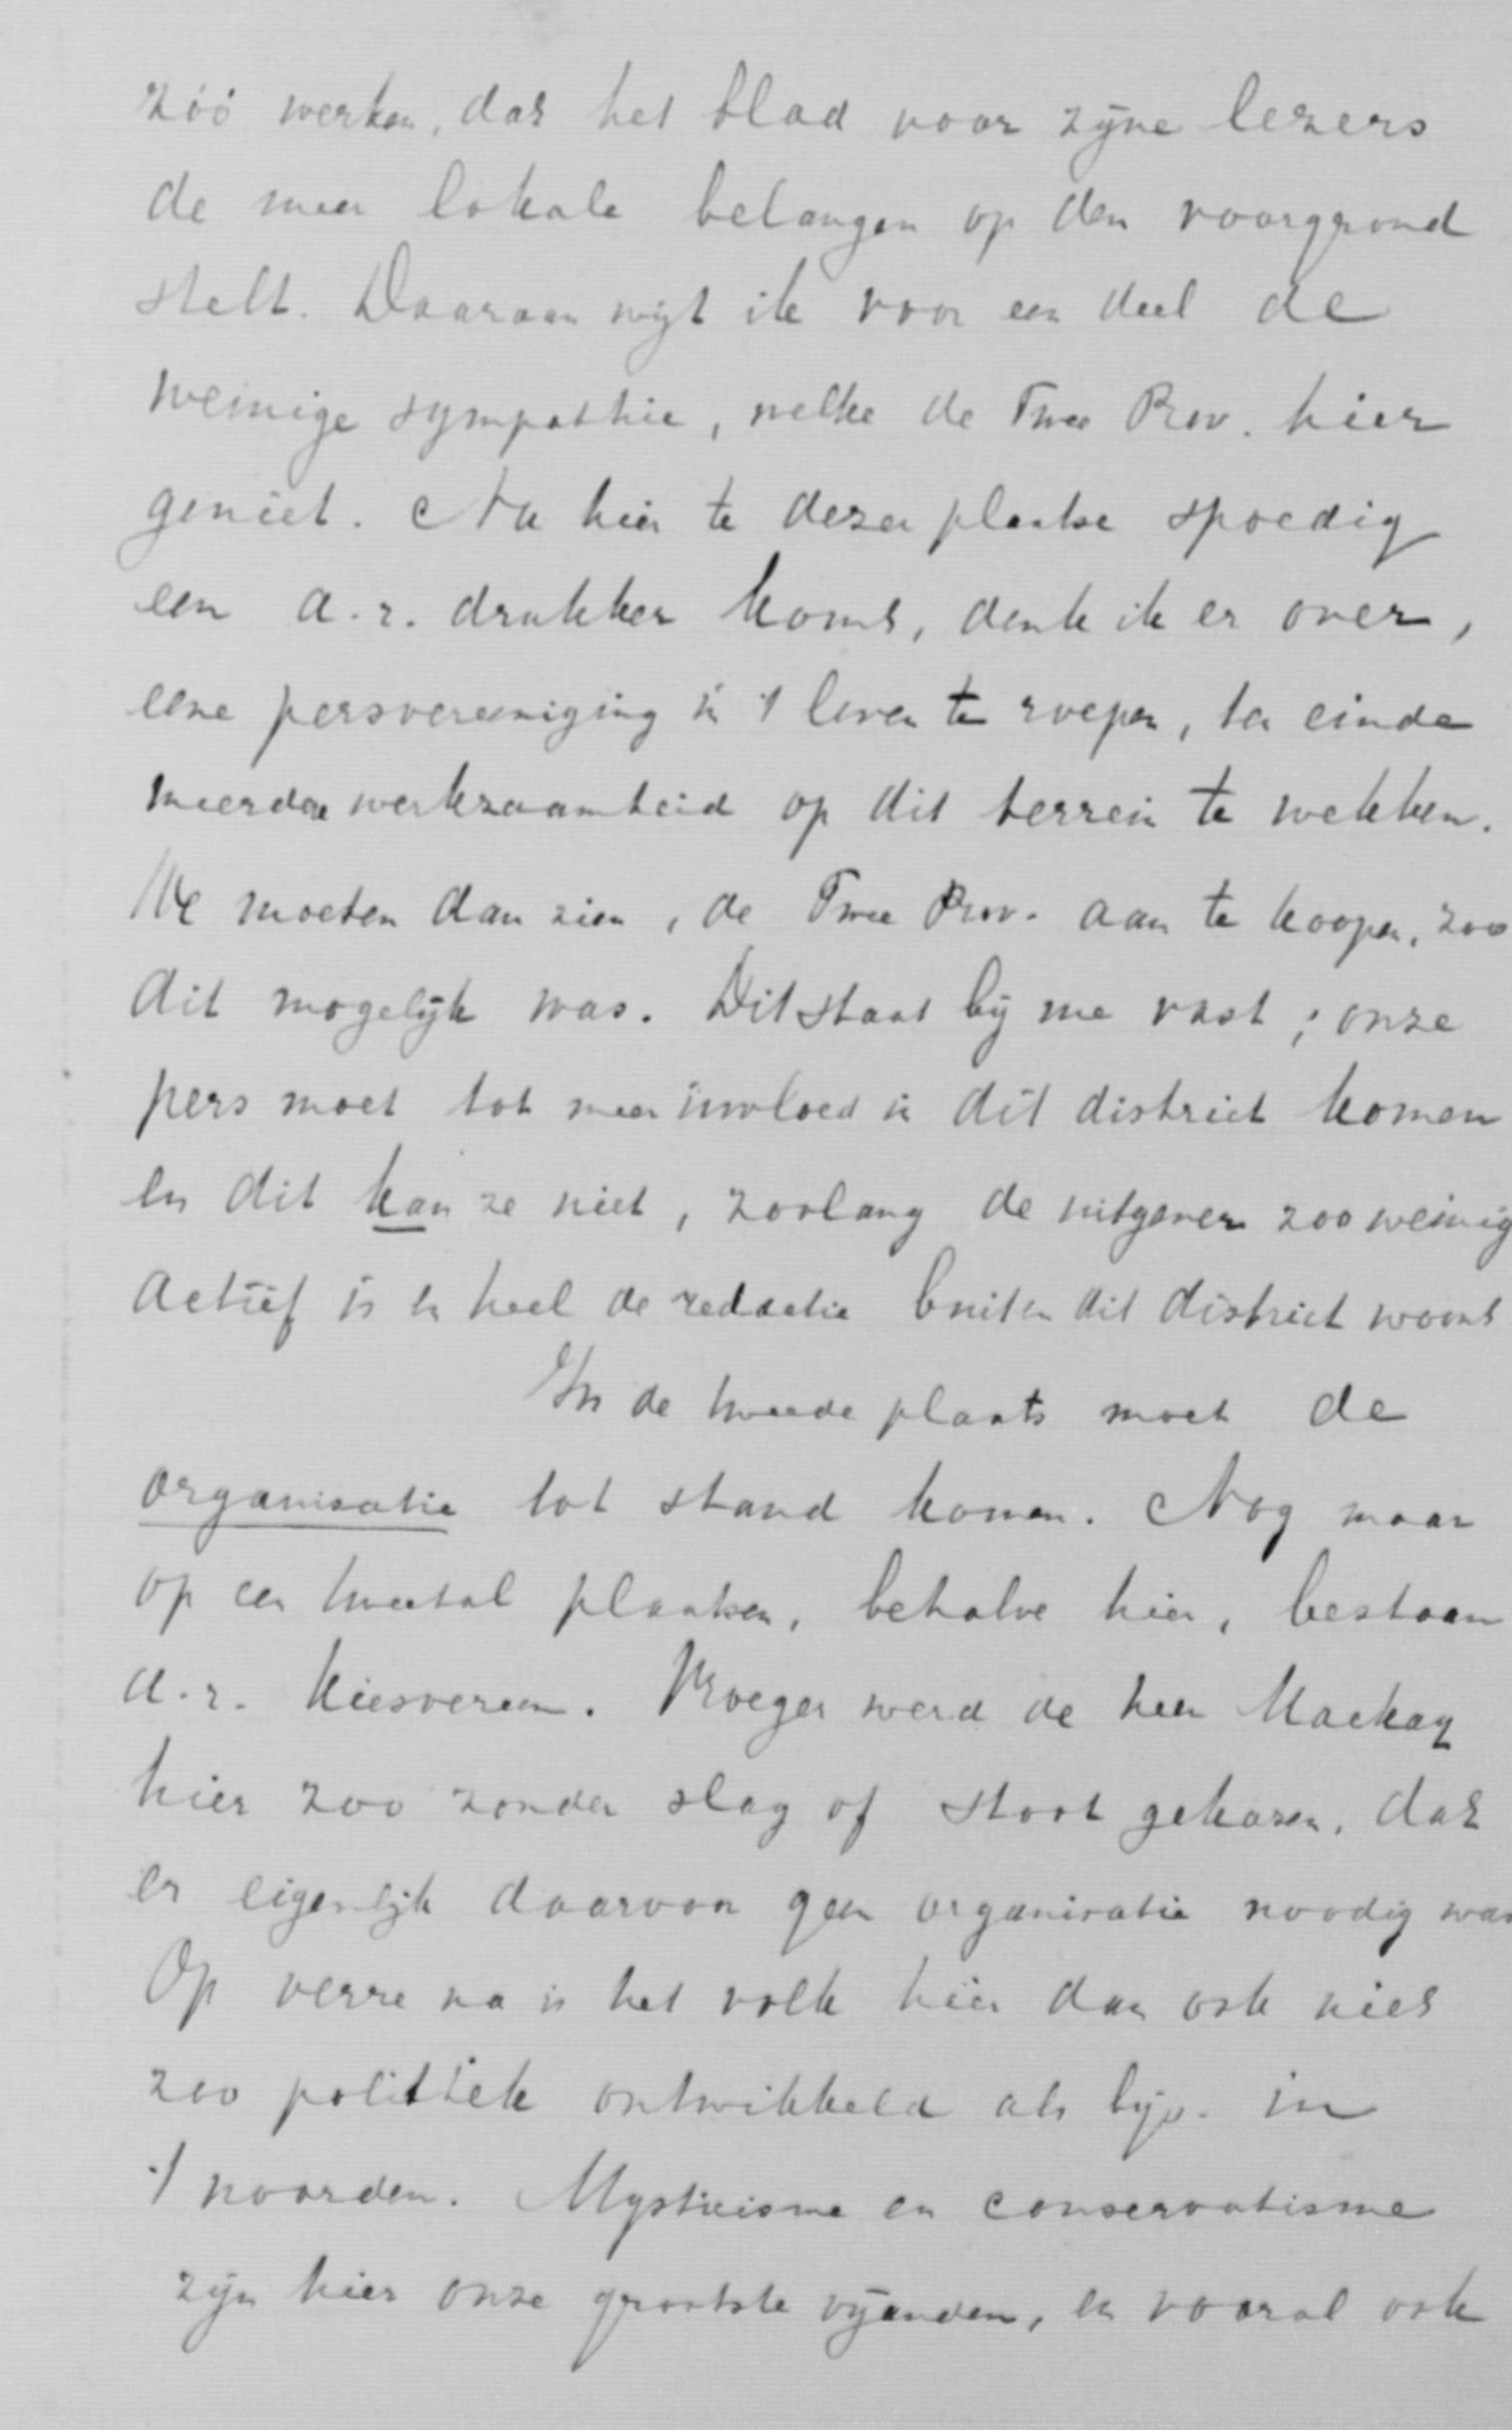 zóó werken, dat het blad voor zijne lezers
de meer lokale belangen op den voorgrond
stelt. Daaraan wijt ik voor een deel de
weinige sympathie, welke de Twee Prov. hier
geniet. Nu hier te dezer plaatse spoedig
een a.r. drukker komt, denk ik er over,
eene persvereeniging in 't leven te roepen, ten einde
meerdere werkzaamheid op dit terrein te wekken.
We moeten dan zien, de Twee Prov. aan te koopen, zoo
dit mogelijk was. Dit staat bij me vast; onze
pers moet tot meer invloed in dit district komen
en dit kan ze niet, zoolang de uitgever zoo weinig
actief is en heel de redactie buiten dit district woont
In de tweede plaats moet de
organisatie tot stand komen. Nog maar
op een tweetal plaatsen, behalve hier, bestaan
a.r. kiesvereen. Vroeger werd de heer Mackay
hier zoo zonder slag of stoot gekozen, dat
er eigenlijk daarvoor geen organisatie noodig was
Op verre na is het volk hier dan ook niet
zoo politiek ontwikkeld als bijv. in
't noorden. Mysticisme en conservatisme
zijn hier onze grootste vijanden, en vooral ook